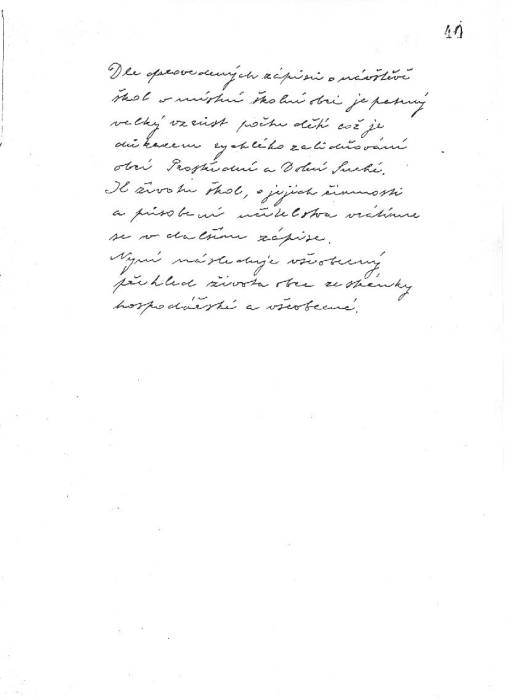 40
Dle opravedených zápisů o návštěvě
škol v místní školní obci je patrný
velký vzrůst počtu dětí což je
důkazem rychlého zalidňování
obcí Prostřední a Dolní Suché.
K životu škol, o jejich činnosti
a působení učitelstva vrátíme
se v dalším zápise.
Nyní následuje všeobecný
přehled života obce ze stránky
hospodářské a všeobecné.